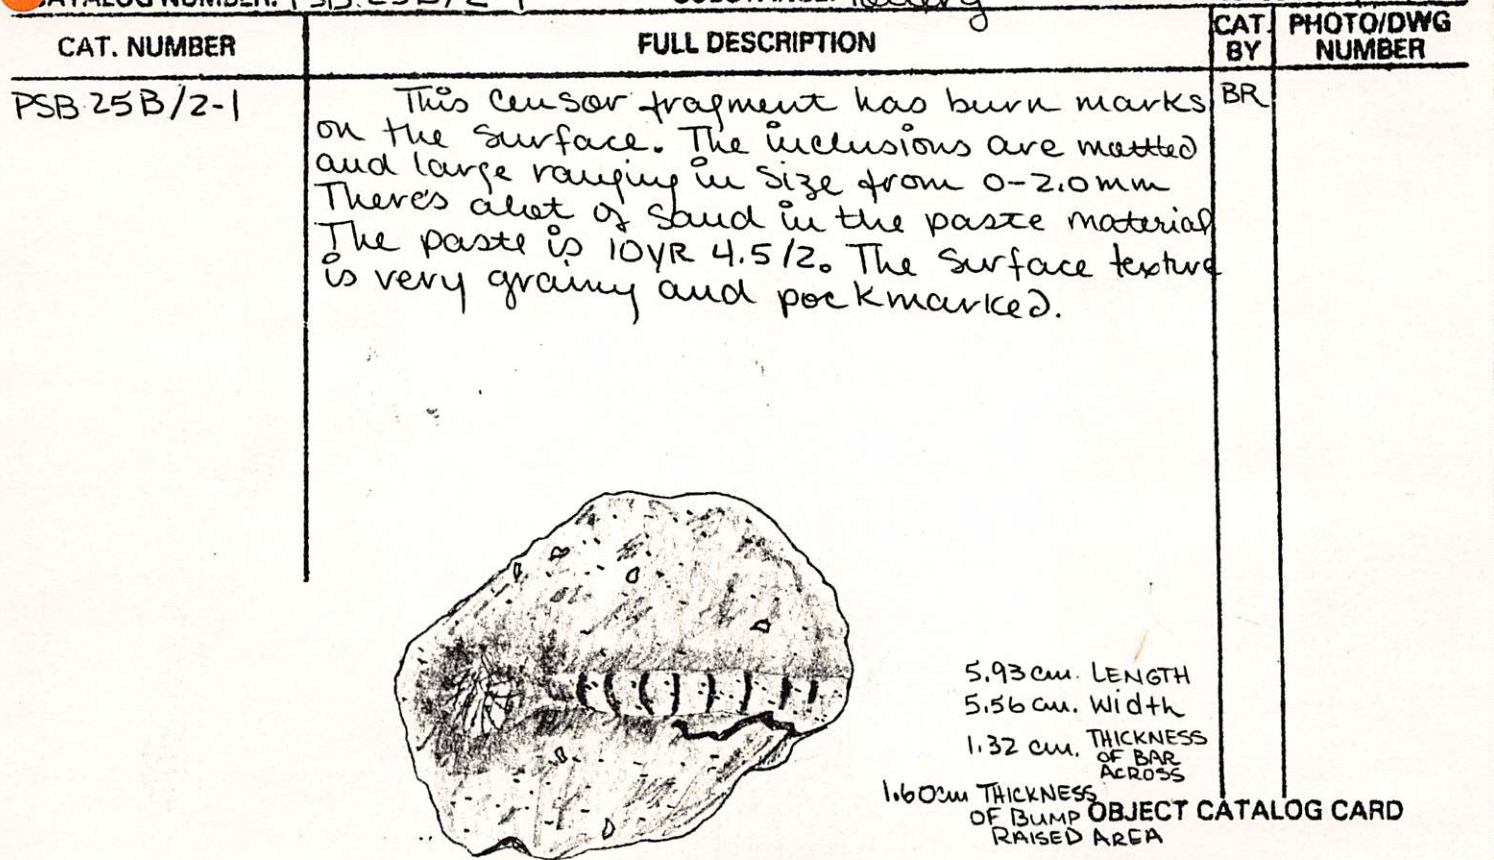 CATALOG NUMBER: PSB.25B/2-1
CAT. NUMBER FULL DESCRIPTION CAT. BY PHOTO/DWG NUMBER
PSB.25B/2-1 This Censor fragment has burn marks BR
on the Surface. The inclusions are mottled
and large ranging in Size from 0-2.0mm
There's alot of Sand in the paste material
The paste is 10YR 4.5/2. The Surface texture
is very grainy and pockmarked.
5.93 cm. LENGTH
5.56 cm. Width
1.32 cm. THICKNESS
OF BAR
ACROSS
1.60cm THICKNESS
OF BUMP
RAISED AREA
OBJECT CATALOG CARD